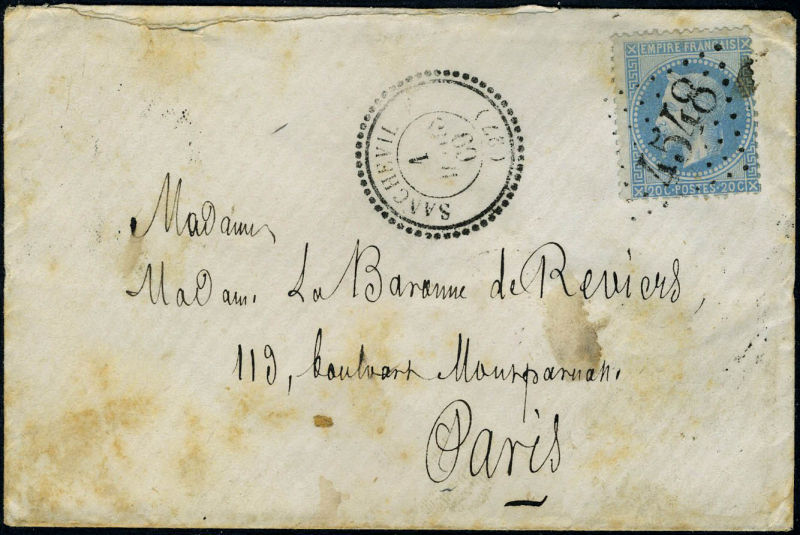 EMPIRE FRANÇAIS
4548
20 C. POSTES 20 C.
SANCHEVIL (27)
Madame,
Madam. La Baronne de Reviers,
119, boulvart Montparnah.
Paris